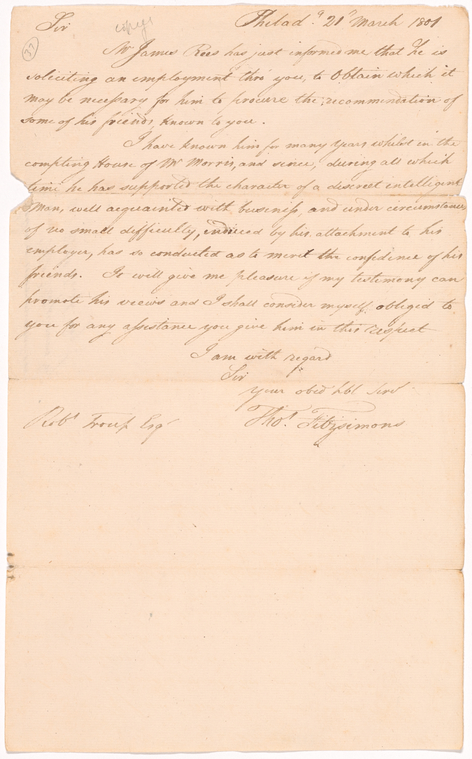 Philad.ª 21st March 1801
Sir
copy
(77)
Mr James Rees has just informed me that he is
soliciting an employment thro you, to Obtain which it
may be necessary for him to procure the recommendation of
some of his friends known to you.
I have known him for many years whilst in the
compting House of Mr Morris, and since, during all which
time he has supported the character of a discreet intelligent
Man, well acquainted with business, and under circumstances
of no small difficulty, induced by his attachment to his
employer, has so conducted as to merit the confidence of his
friends. It will give me pleasure if my testimony can
promote his views and I shall consider myself obliged to
you for any assistance you give him in this respect
I am with regard
Sir
your obed hbl Servt
Thos. Fitzsimons
Robt Troup Esqr